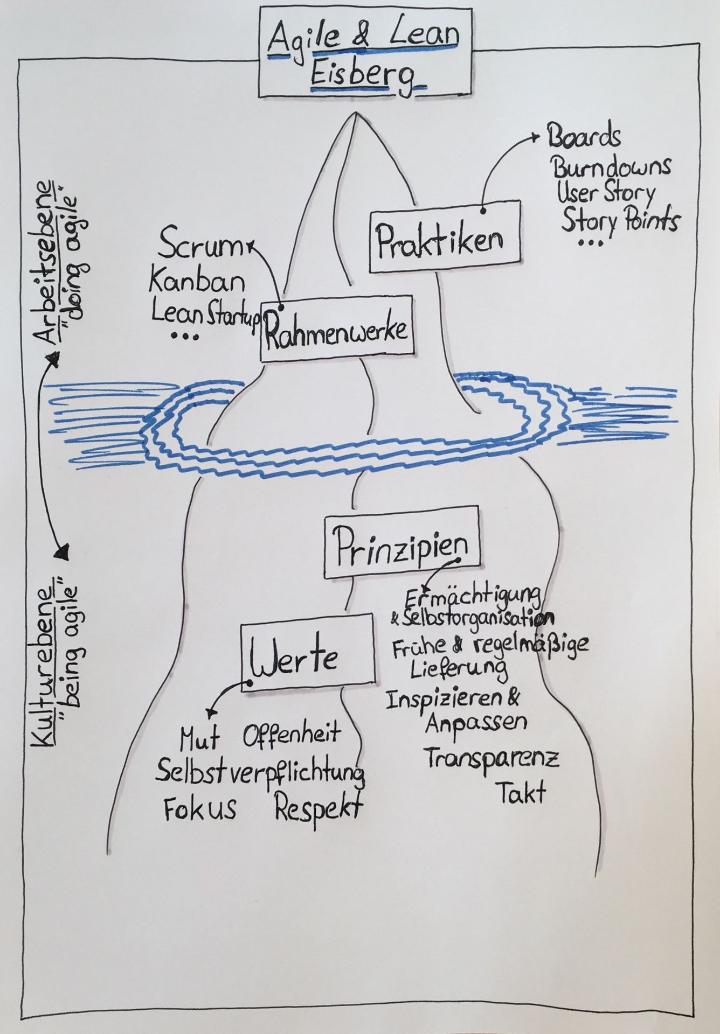 Agile & Lean
Eisberg
Boards
Burndowns
User Story
Story Points
...
Praktiken
Scrum
Kanban
Lean Startup
...
Rahmenwerke
Arbeitsebene
"doing agile"
Prinzipien
Ermächtigung
& Selbstorganisation
Frühe & regelmäßige
Lieferung
Inspizieren &
Anpassen
Transparenz
Takt
Werte
Mut Offenheit
Selbstverpflichtung
Fokus Respekt
Kulturebene
"being agile"